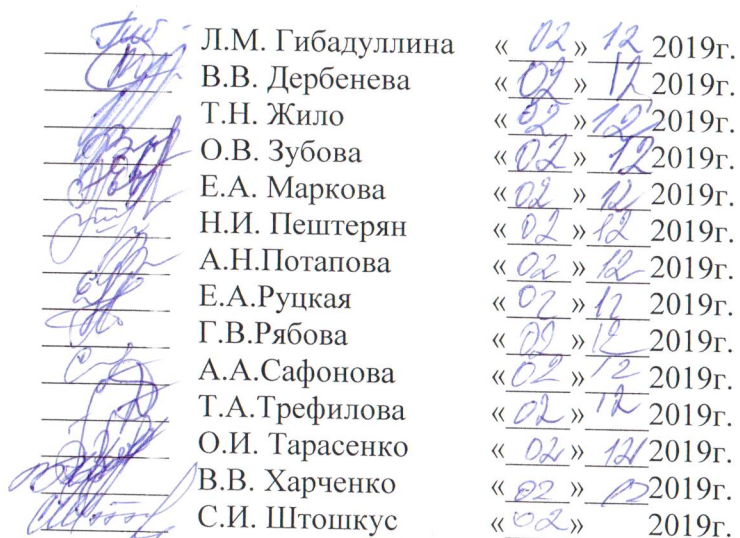 Л.М. Гибадуллина « 02 » 12 2019г.
В.В. Дербенева « 02 » 12 2019г.
Т.Н. Жило « 02 » 12 2019г.
О.В. Зубова « 02 » 12 2019г.
Е.А. Маркова « 02 » 12 2019г.
Н.И. Пештерян « 02 » 12 2019г.
А.Н.Потапова « 02 » 12 2019г.
Е.А.Руцкая « 02 » 12 2019г.
Г.В.Рябова « 02 » 12 2019г.
А.А.Сафонова « 02 » 12 2019г.
Т.А.Трефилова « 02 » 12 2019г.
О.И. Тарасенко « 02 » 12 2019г.
В.В. Харченко « 02 » 2019г.
С.И. Штошкус « 02 » 2019г.